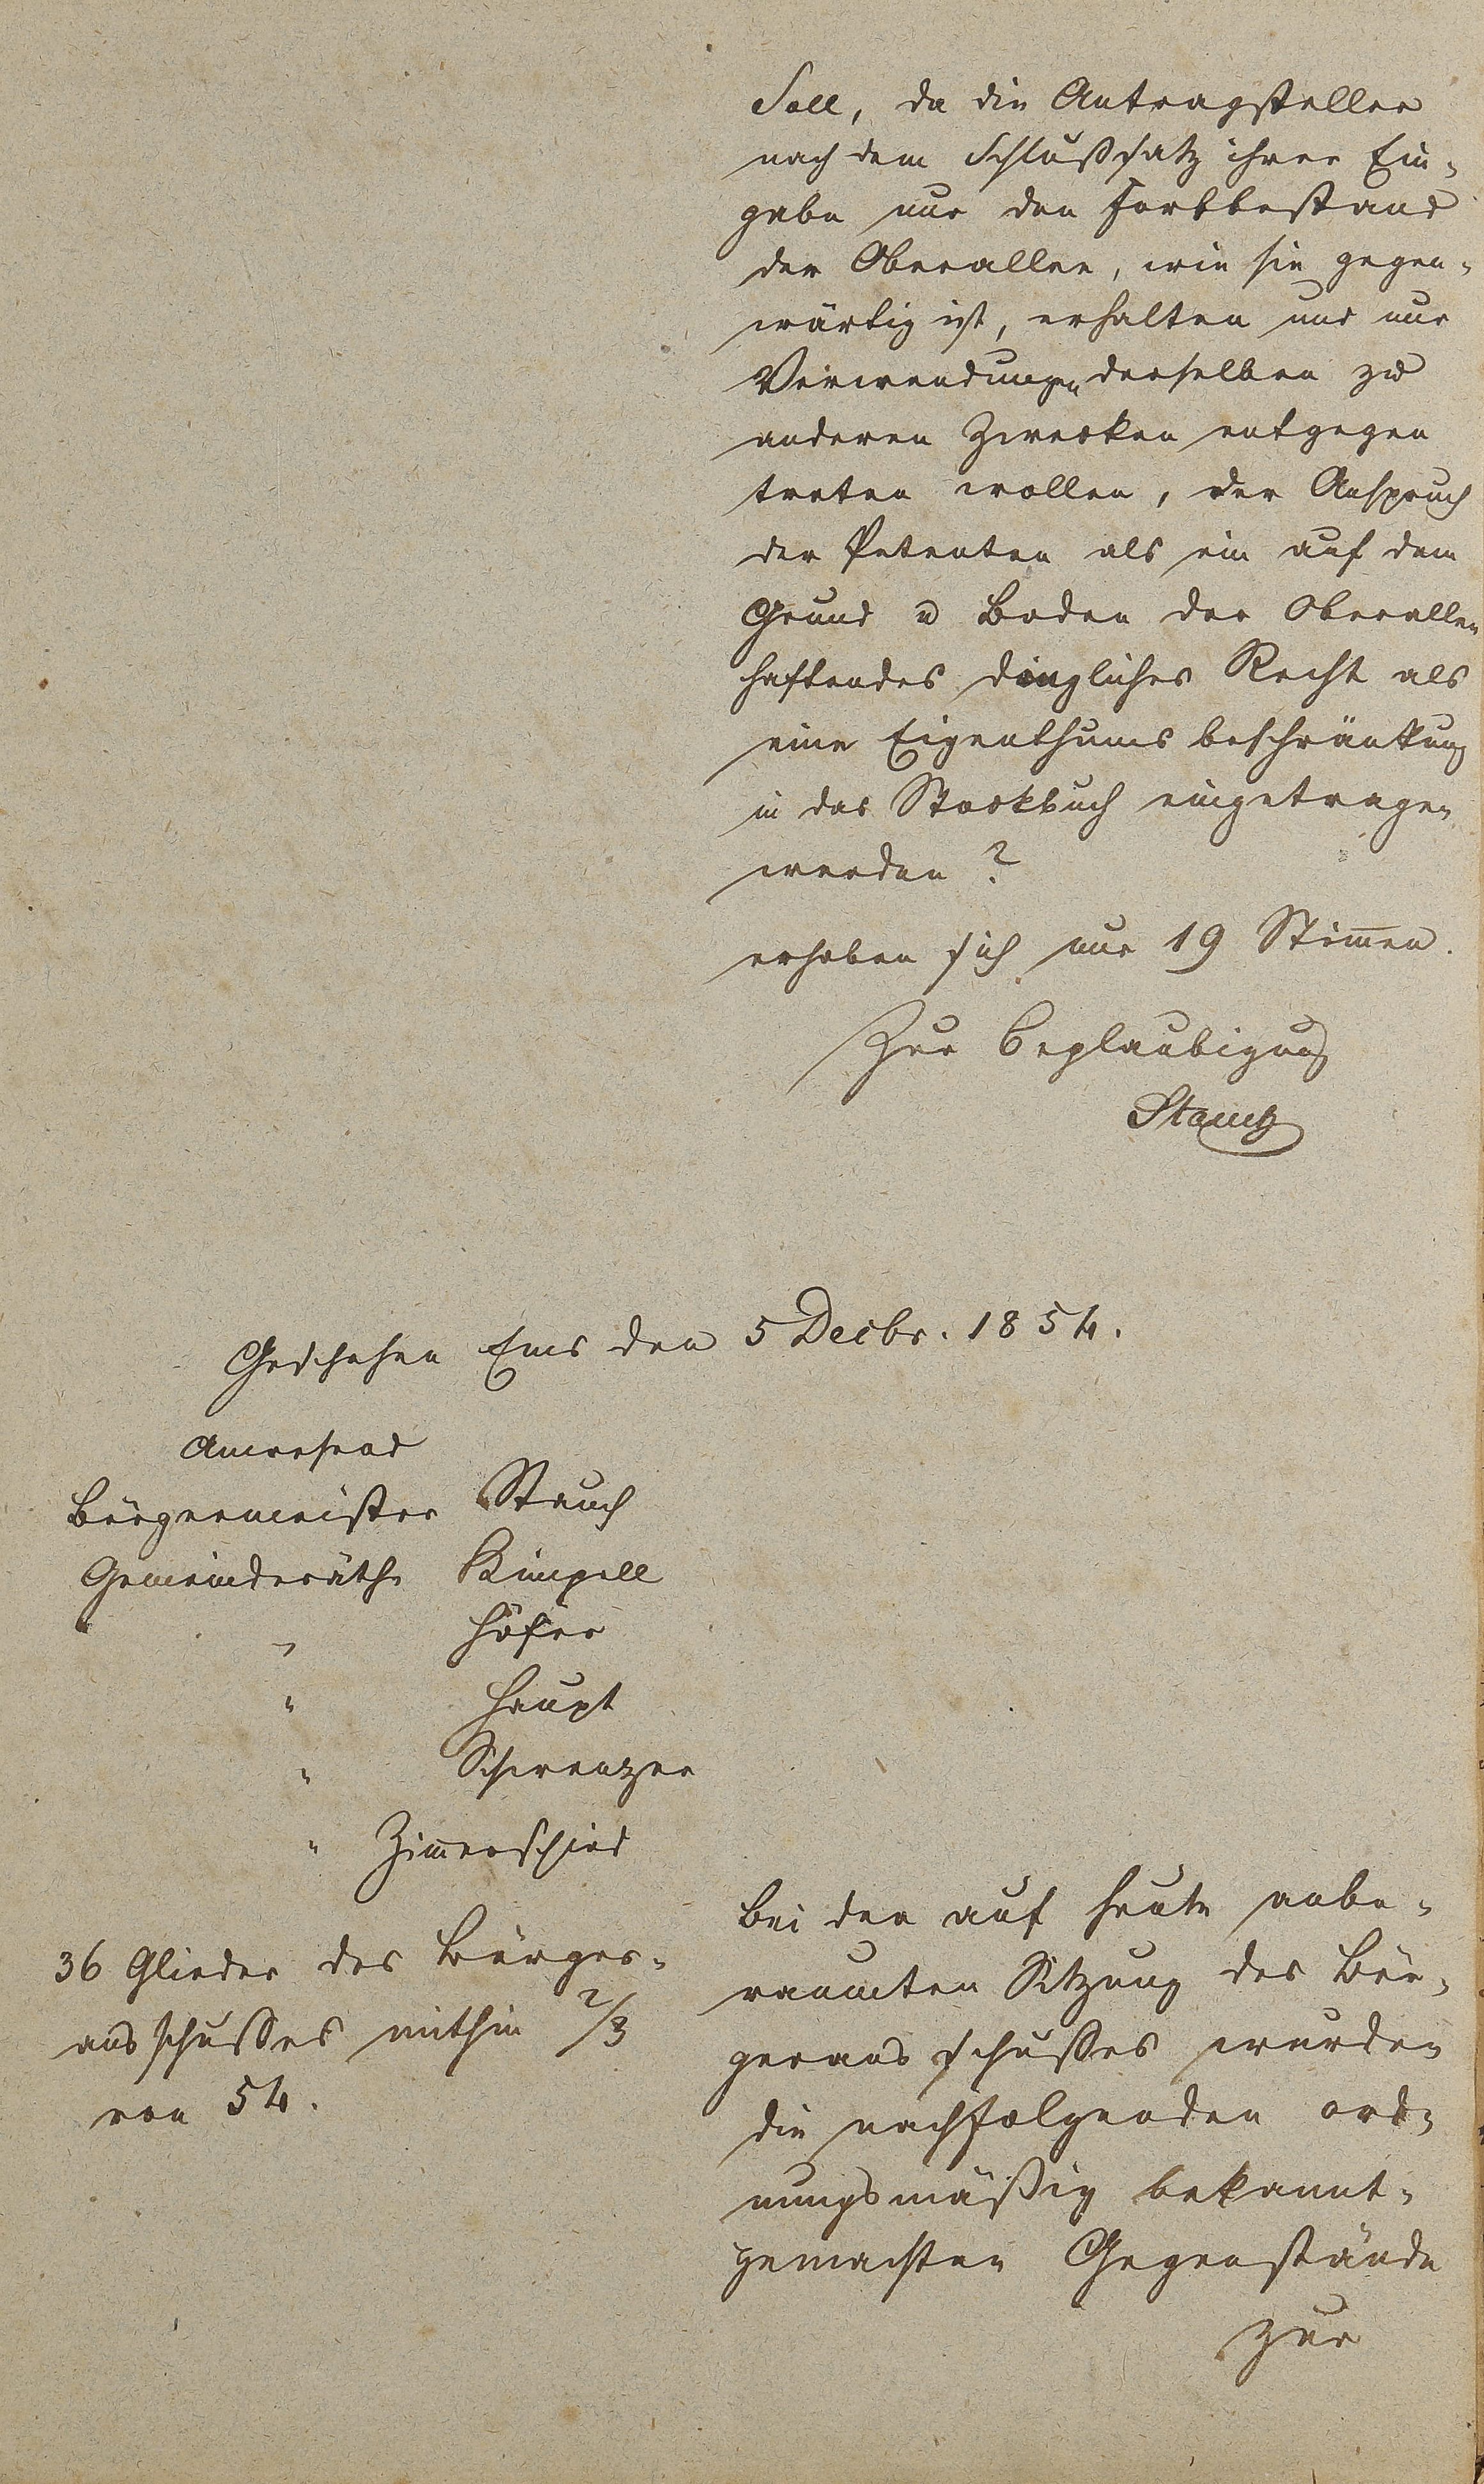 Soll, da die Antragsteller
nach dem Schlußsatz ihrer Ein-
gabe nur den Fortbestand
der Oberallee, wie sie gegen-
wärtig ist, erhalten und nur
Verwendungen derselben zu
anderen Zwecken entgegen
treten wollen, der Anspruch
der Petenten als ein auf dem
Grund u Boden der Oberallee
haftendes dingliches Recht als
eine Eigenthums beschränkung
in das Stockbuch eingetragen
werden?
erhoben sich nur 19 Stimen.
Zur Beglaubigung
Geschehen Ems den 5 Decbr. 1854.
Anwesend
Bürgermeister Stauch
Gemeinderäthe Kimpell
" Höfer
" Haupt
" Schwenzer
" Zimerschied
36 Glieder des Bürger-
ausschußes mithin 2/3
von 54.
Bei der auf heute anbe-
raumten Sitzung des Bür-
gerausschußes wurden
die nachfolgenden ord-
nungsmäßig bekannt-
gemachten Gegenstände
zur